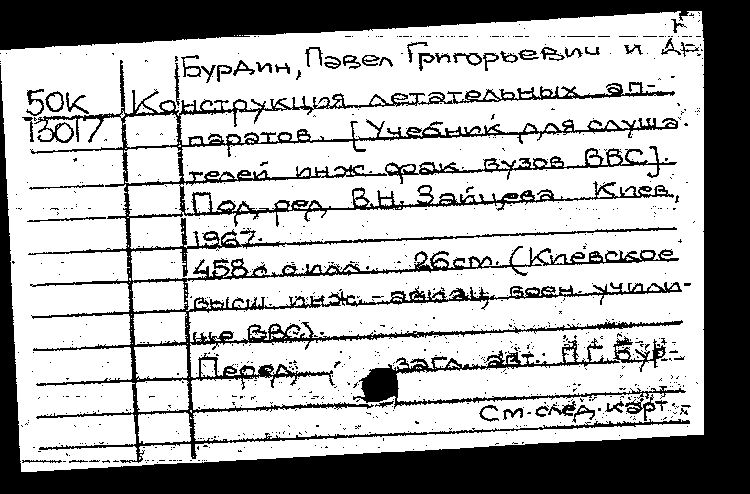 Бурдин, Павел Григорьевич и др.
50К Конструкция летательных ап-
13017 паратов. [Учебник для слуша-
телей инж. фак. вузов ВВС].
Под ред. В.Н. Зайцева. Киев,
1967.
458 с. с илл. 26 см. (Киевское
высш. инж.-авиац. воен. учили-
ще ВВС).
Перед загл. авт.: П.Г. Бур-
См. след. карт.